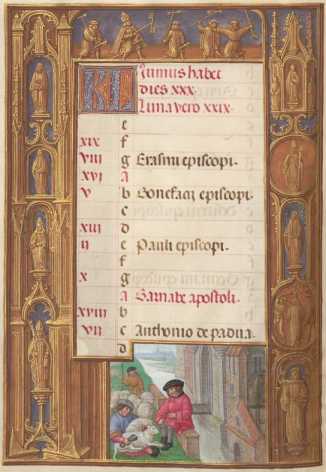 KL Junius habet
dies xxx.
Luna vero xxix.
e
xix f
viii g Erasmi episcopi.
xvi a
v b Bonefacij episcopi.
c
xiii d
ii e Pauli episcopi.
f
x g
a Barnabe apostoli.
xviii b
vii c Anthonio de padua.
d